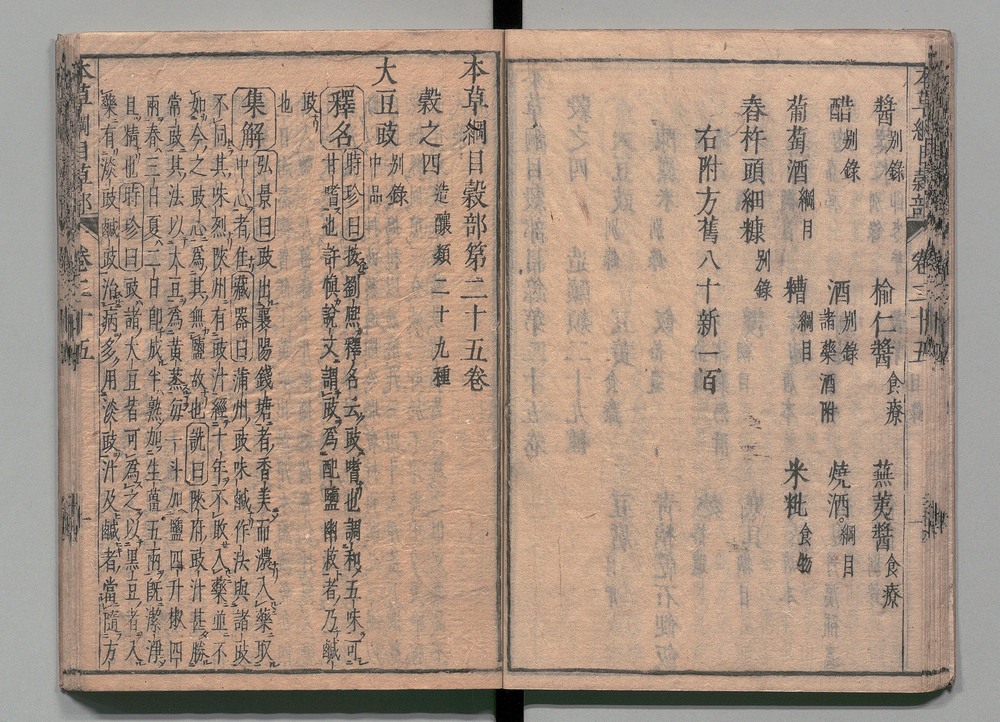 醬別錄 榆仁醬食療 蕪荑醬食療
醋別錄 酒別錄 諸藥酒附 燒酒綱目
葡萄酒綱目 糟綱目 米秕食物
舂杵頭細糠別錄
右附方舊八十新一百
本草綱目穀部第二十五卷
穀之四造釀類二十九種
大豆豉別錄中品
釋名時珍曰按劉熙釋名云豉嗜也調和五味可
甘嗜也許慎說文謂豉為配鹽幽菽者乃鹹
豉
也
集解弘景曰豉出襄陽錢塘者香美而濃入藥取
中心者佳藏器曰蒲州豉味鹹作法與諸豉
不同其味烈陝州有豉汁經十年不敗入藥並不
如今之豉心為其無鹽故也詵曰陝府豉汁甚勝
常豉其法以大豆為黃蒸每一斗加鹽四升椒四
兩春三日夏二日即成半熟加生薑五兩既潔淨
且精也時珍曰豉諸大豆皆可為之以黑豆者入
藥有淡豉鹹豉治病多用淡豉汁及鹹者當隨方
本草綱目草部 卷二十五